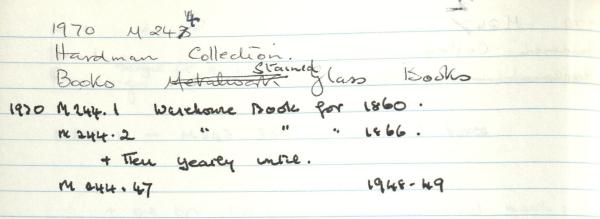 1970 M 244
Hardman Collection.
Books Metalwork Stained glass Books
1970 M 244.1 Warehouse Book for 1860.
M 244.2 " " " 1866.
+ then yearly until.
M 244.47 1948-49